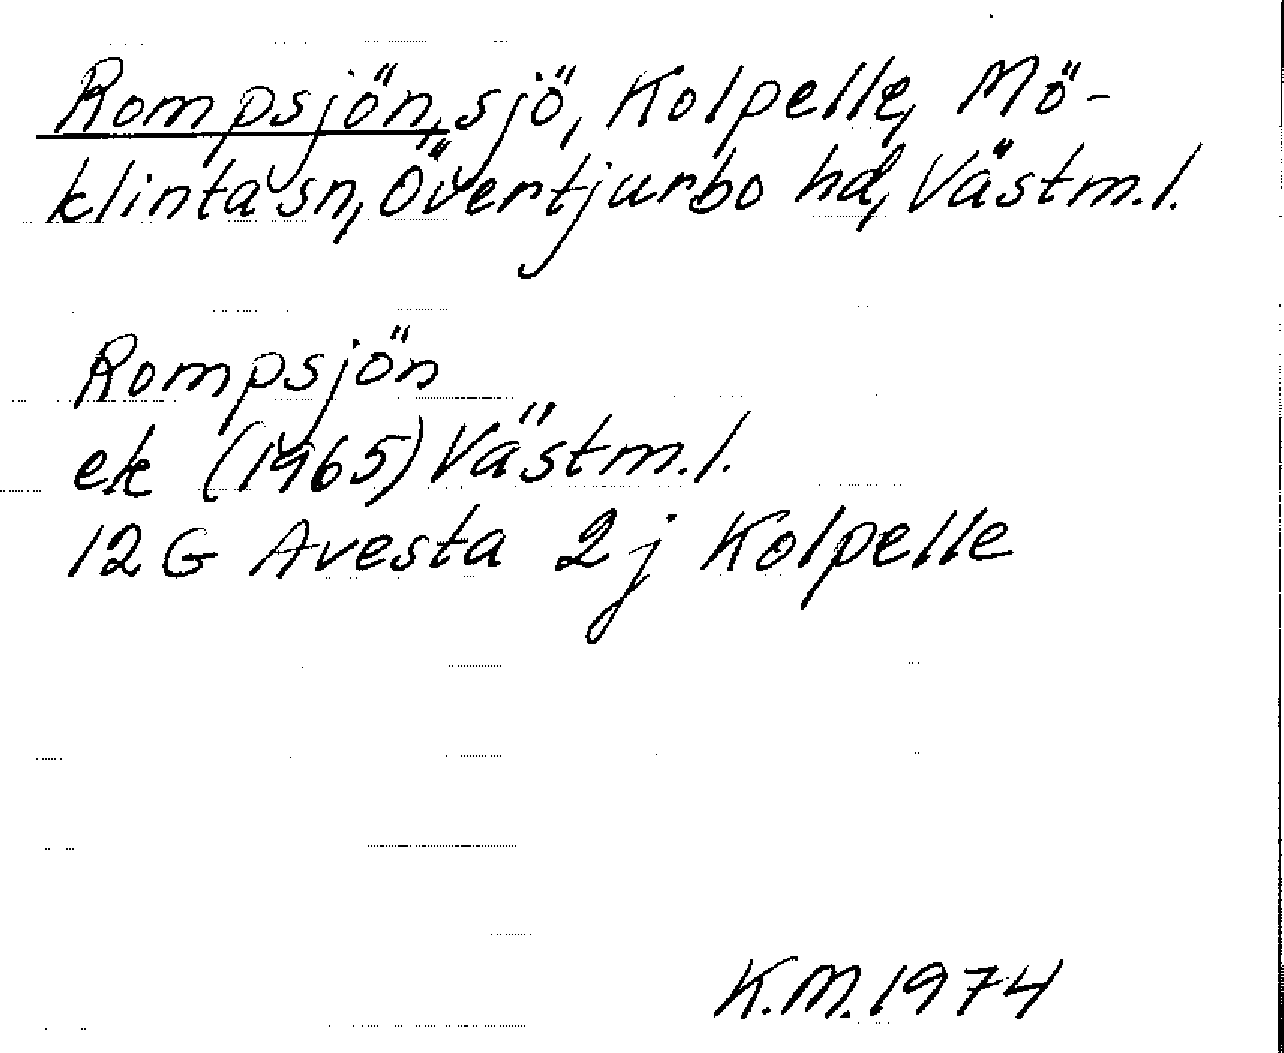 Rompsjön, sjö, Kolpelle, Mö-
klinta sn, Övertjurbo hd, Västm.l.
Rompsjön
ek (1965) Västm.l.
12 G Avesta 2j Kolpelle
K.M. 1974